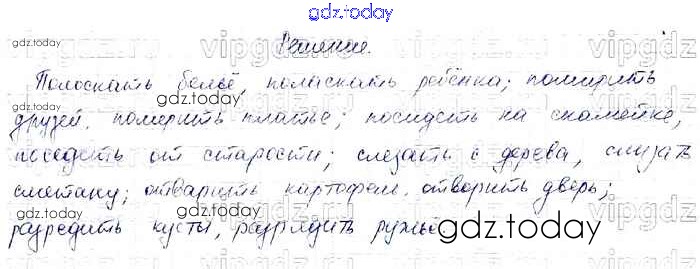 gdz.today
Решение.
Полоскать бельё, поласкать ребёнка; помирить
друзей, померить платье; посидеть на скамейке,
поседеть от старости; слезать с дерева, слизать
сметану; отварить картофель, отворить дверь;
разредить кусты, разрядить ружьё.